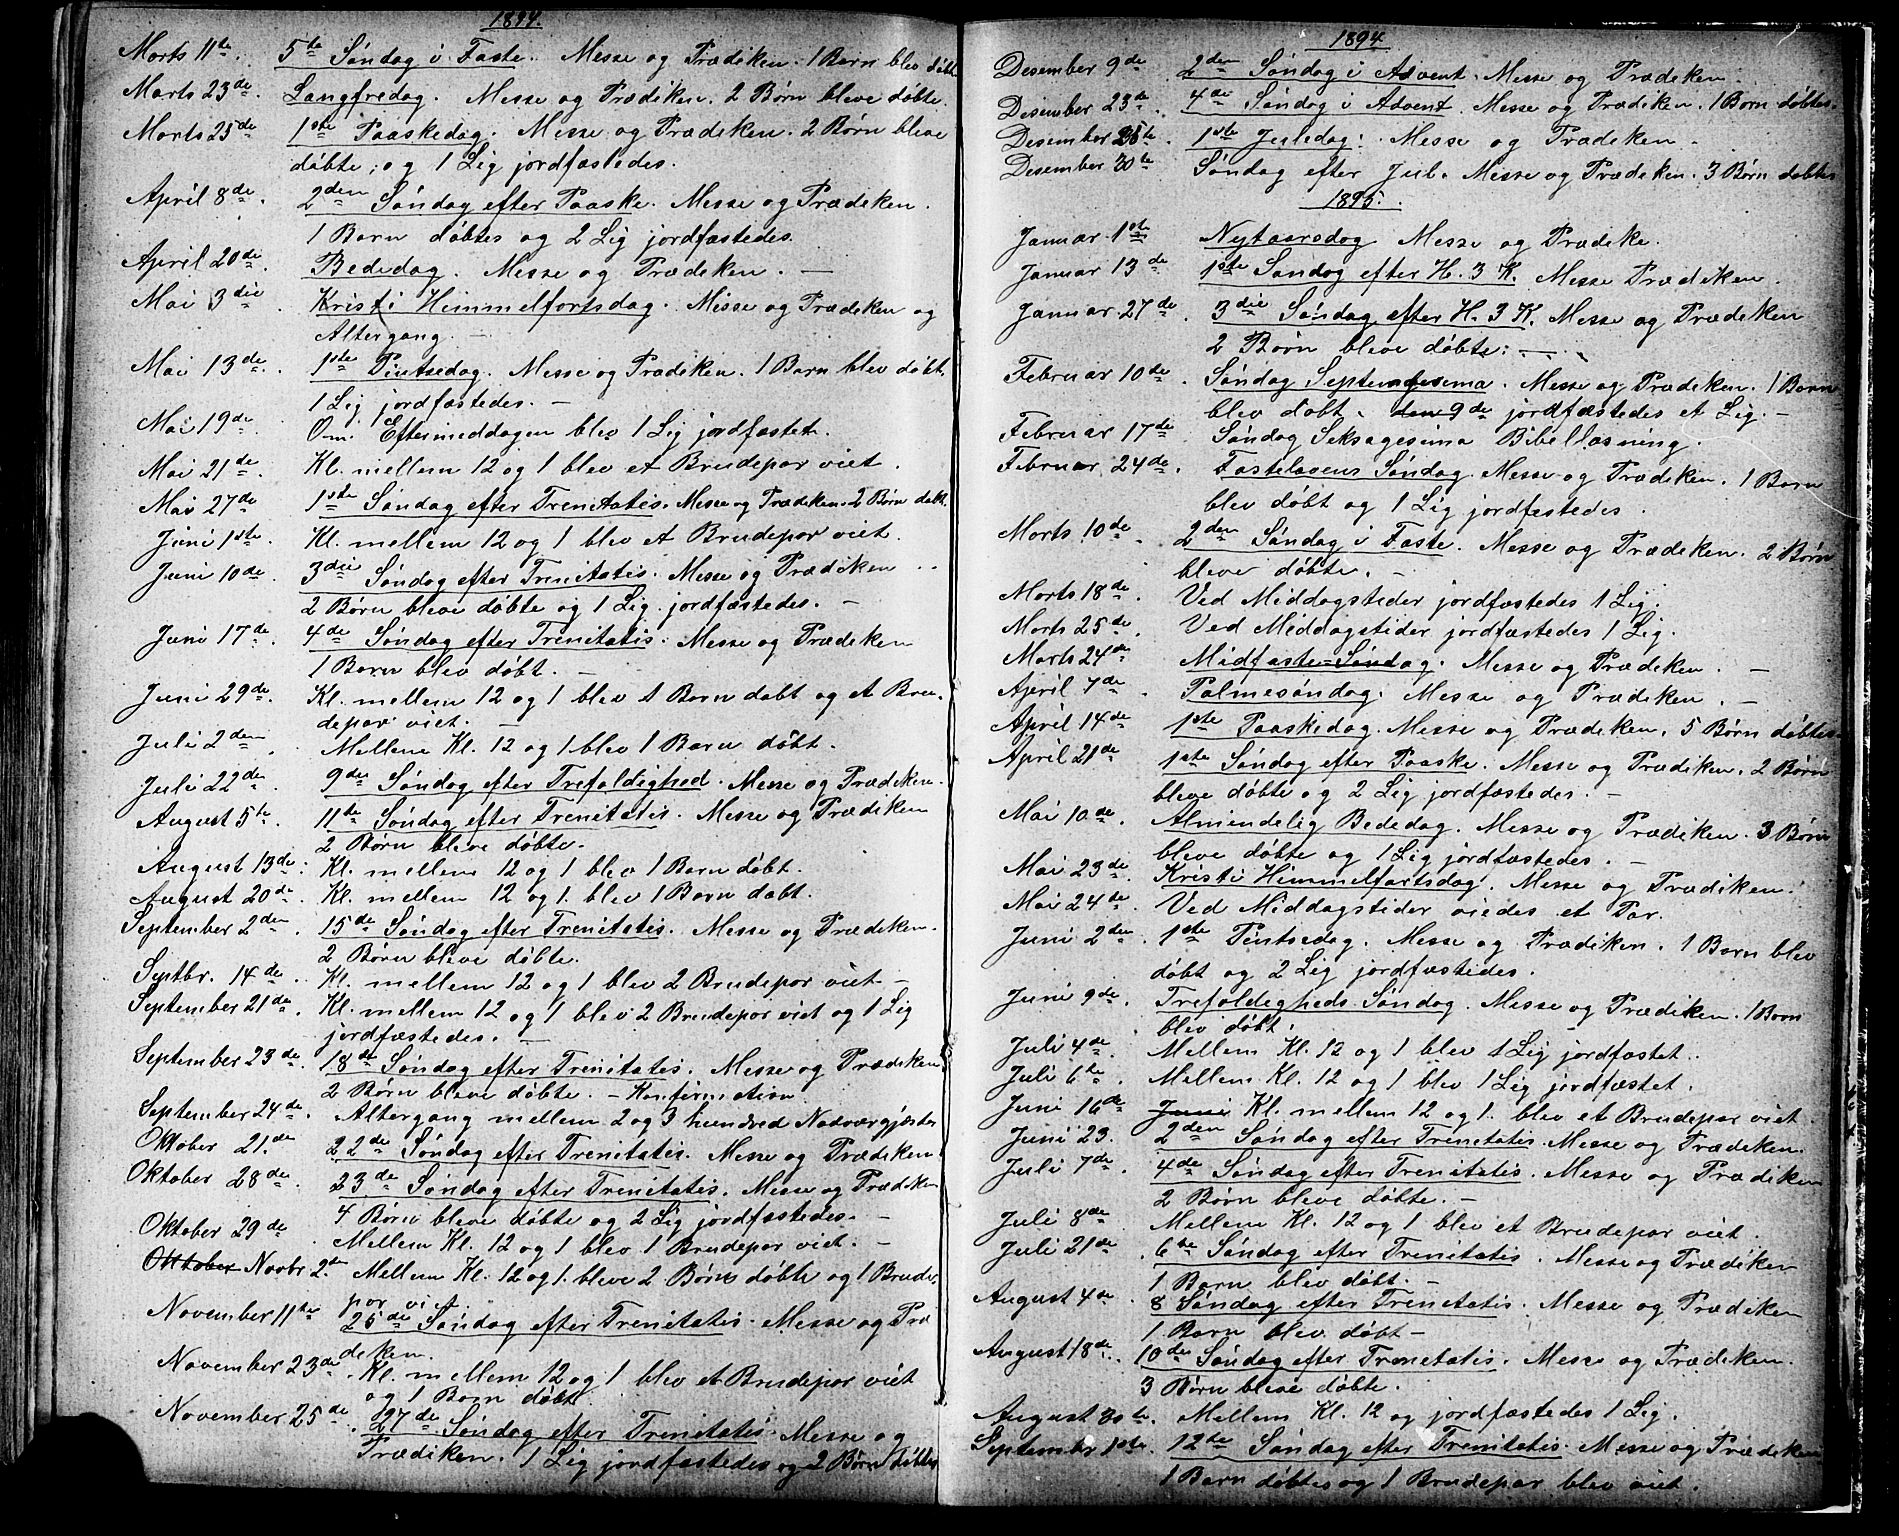 1894.
Marts 11te 5te Søndag i Faste. Messe og Prædiken. 1 Barn blev døbt
Marts 23de. Langfredag. Messe og Prædiken. 2 Børn bleve døbte.
Marts 25de 1ste Paaskedag. Messe og Prædiken. 2 Børn bleve
døbte; og 1 Lig jordfæstedes.
April 8de. 2den Søndag efter Paaske. Messe og Prædiken.
1 Barn døbtes og 2 Lig jordfæstedes.
April 20de. Bededag. Messe og Prædiken. —
Mai 3die Kristi Himmelfartsdag. Messe og Prædiken og
Altergang. —
Mai 13de. 1ste Pintsedag. Messe og Prædiken. 1 Barn blev døbt.
1 Lig jordfæstedes. —
Mai 19de Om Eftermeddagen blev 1 Lig jordfæstet.
Mai 21de. Kl. mellem 12 og 1 blev et Brudepar viet.
Mai 27de 1ste Søndag efter Trenitatis. Messe og Prædiken. 2 Børn døbt.
Juni 1ste. Kl. mellem 12 og 1 blev et Brudepar viet.
Juni 10de. 3die Søndag efter Trenitatis. Messe og Prædiken
2 Børn bleve døbte og 1 Lig jordfæstedes. —
Juni 17de. 4de Søndag efter Trenitatis. Messe og Prædiken
1 Barn blev døbt. —
Juni 29de. Kl. mellem 12 og 1 blev 1 Barn døbt og et Bru-
depar viet. —
Juli 2den. Mellem Kl. 12 og 1 blev 1 Barn døbt.
Juli 22de. 9de Søndag efter Trefoldighed. Messe og Prædiken.
August 5te. 11te Søndag efter Trenitatis. Messe og Prædiken
2 Børn bleve døbte.
August 13de. Kl. mellem 12 og 1 blev 1 Barn døbt.
August 20de. Kl. mellem 12 og 1. blev 1 Barn døbt.
September 2den. 15de Søndag efter Trenitatis. Messe og Prædeken.
2 Børn bleve døbte.
Septbr. 14de. Kl. mellem 12 og 1 blev 2 Brudepar viet. —
September 21de. Kl. mellem 12 og 1 blev 2 Brudepar viet og 1 Lig
jordfæstedes. —
September 23de. 18de Søndag efter Trenitatis. Messe og Prædeken
2 Børn bleve døbte. — Konfirmation.
September 24de. Altergang mellem 2 og 3 hundred Nadvergjæster
Oktober 21de 22de Søndag efter Trenitatis. Messe og Prædeken
Oktober 28de. 23de Søndag efter Trenitatis. Messe og Prædiken
4 Børn bleve døbte og 2 Lig jordfæstedes. —
Oktober 29de Mellem Kl. 12 og 1 blev 1 Brudepar viet. —
Oktober Novbr. 2den Mellem Kl. 12 og 1. bleve 2 Børn døbte og 1 Brude-
par viet
November 11te 25de Søndag efter Trenitatis. Messe og Præ
deken.
November 23de. Kl. mellem 12 og 1 blev et Brudepar viet
og 1 Barn døbt.
November 25de. 27de Søndag efter Trenitatis. Messe og
Prædiken. 1 Lig jordfæstedes og 2 Børn døbtes
1894.
Desember 9de 2den Søndag i Advent. Messe og Prædiken.
Desember 23de. 4de Søndag i Advent. Messe og Prædiken. 1 Barn døbtes.
Desember 25te 1ste Juledag: Messe og Prædiken.
Desember 30te Søndag efter Jul. Messe og Prædeken. 3 Børn døbtes
1895.
Januar 1ste Nytaarsdag Messe og Prædike.
Januar 13de 1ste Søndag efter H. 3 K. Messe Prædiken.
Januar 27de. 3die Søndag efter H. 3 K. Messe og Prædiken
2 Børn bleve døbte: —
Februar 10de. Søndag Septuagesima. Messe og Prædiken. 1 Barn
blev døbt. den 9de jordfæstedes et Lig. —
Februar 17de. Søndag Seksagesima Bibellæsning.
Februar 24de. Fastelavens Søndag. Messe og Prædiken. 1 Barn
blev døbt og 1 Lig jordfæstedes.
Marts 10de. 2den Søndag i Faste. Messe og Prædiken. 2 Børn
bleve døbte. —
Marts 18de. Ved Middagstider jordfæstedes 1 Lig.
Marts 25de. Ved Middagstider jordfæstedes 1 Lig.
Marts 24de Midfaste-Søndag. Messe og Prædiken. —
April 7de. Palmesøndag. Messe og Prædiken. —
April 14de 1ste Paaskedag. Messe og Prædiken. 5 Børn døbtes.
April 21de 1ste Søndag efter Paaske. Messe og Prædiken. 2 Børn
bleve døbte og 2 Lig jordfæstedes. —
Mai 10de. Almindelig Bededag. Messe og Prædiken. 3 Børn
bleve døbte og 1 Lig jordfæstedes. —
Mai 23de. Kristi Himmelfartsdag. Messe og Prædiken.
Mai 24de. Ved Middagstider viedes et Par.
Juni 2den. 1ste Pintsedag. Messe og Prædiken. 1 Barn blev
døbt og 2 Lig jordfæstedes.
Juni 9de. Trefoldigheds Søndag. Messe og Prædiken. 1 Barn
blev døbt.
Juli 4de. Mellem Kl. 12 og 1 blev 1 Lig jordfæstet.
Juli 6te. Mellem Kl. 12 og 1 blev 1 Lig jordfæstet.
Juni 16de Juni Kl. mellem 12 og 1. blev et Brudepar viet
Juni 23. 2den Søndag efter Trenitatis. Messe og Prædiken.
Juli 7de. 4de Søndag efter Trenitatis. Messe og Prædiken
2 Børn bleve døbte. —
Juli 8de Mellem Kl. 12 og 1 blev et Brudepar viet.
Juli 21de. 6te Søndag efter Trenitatis. Messe og Prædiken
1 Barn blev døbt. —
August 4de. 8 Søndag efter Trenitatis. Messe og Prædiken
1 Barn blev døbt —
August 18de. 10de Søndag efter Trenetatis. Messe og Prædiken.
3 Børn bleve døbte.
August 30te. Mellem Kl. 12 og jordfæstedes 1 Lig.
September 1ste. 12te Søndag efter Trenitatis. Messe og Prædeken
1 Barn døbtes og 1 Brudepar blev viet.